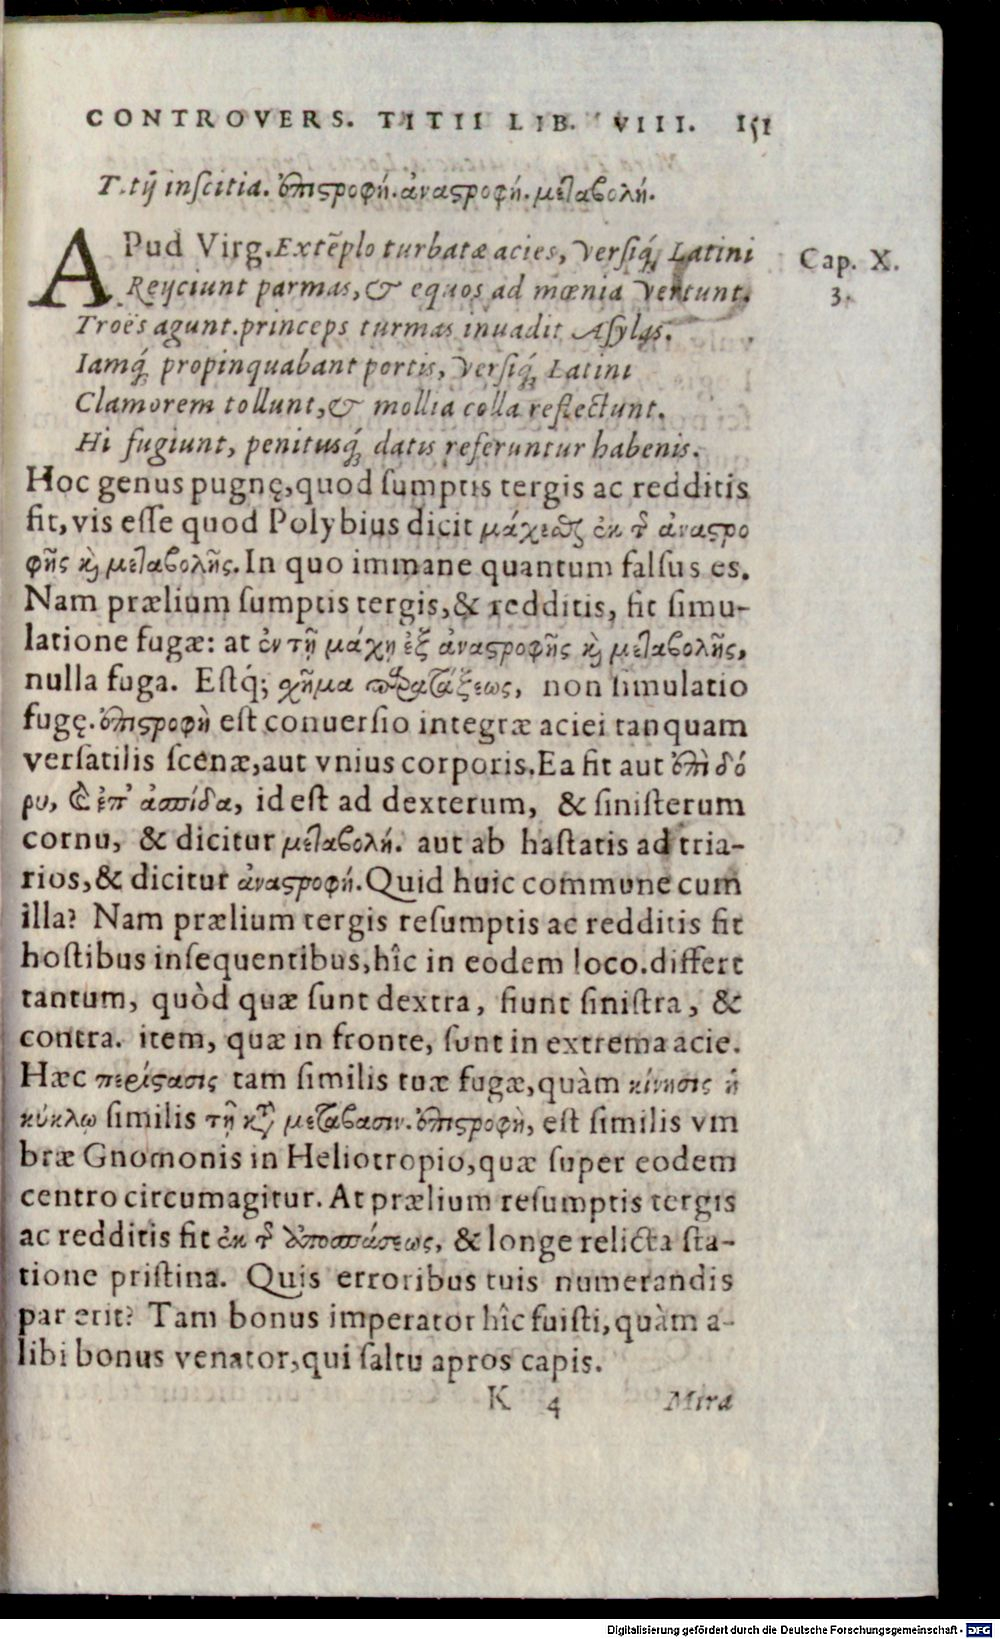 CONTROVERS. TITII LIB. VIII. 151
T.tij inſcitia. ἐπιςροφή. ἀναςροφή. μεταβολή.
APud Virg. Extẽplo turbatæ acies, verſiq́; Latini
Cap. X.
Reijciunt parmas, & equos ad mœnia vertunt.
3.
Troës agunt. princeps turmas inuadit Aſylas.
Iamq́; propinquabant portis, verſiq́; Latini
Clamorem tollunt, & mollia colla reflectunt.
Hi fugiunt, penitusq́; datis referuntur habenis.
Hoc genus pugnę, quod ſumptis tergis ac redditis
fit, vis eſſe quod Polybius dicit μάχεσθαι ἐκ τῆς ἀναςρο
φῆς καὶ μεταβολῆς. In quo immane quantum falſus es.
Nam prælium ſumptis tergis, & redditis, fit ſimu-
latione fugæ: at ἐν τῇ μάχῃ ἐξ ἀναςροφῆς καὶ μεταβολῆς,
nulla fuga. Eſtq́; σχῆμα παρατάξεως, non ſimulatio
fugę. ἐπιςροφὴ eſt conuerſio integræ aciei tanquam
verſatilis ſcenæ, aut vnius corporis. Ea fit aut ἐπὶ δό
ρυ, ἢ ἐπ' ἀσπίδα, id eſt ad dexterum, & ſiniſterum
cornu, & dicitur μεταβολή. aut ab haſtatis ad tria-
rios, & dicitur ἀναςροφή. Quid huic commune cum
illa? Nam prælium tergis reſumptis ac redditis fit
hoſtibus inſequentibus, hîc in eodem loco. differt
tantum, quòd quæ ſunt dextra, fiunt ſiniſtra, &
contra. item, quæ in fronte, ſunt in extrema acie.
Hæc περίςασις tam ſimilis tuæ fugæ, quàm κίνησις ἡ
κύκλῳ ſimilis τῇ κατὰ μετάβασιν. ἐπιςροφὴ, eſt ſimilis vm
bræ Gnomonis in Heliotropio, quæ ſuper eodem
centro circumagitur. At prælium reſumptis tergis
ac redditis fit ἐκ τῆς ἀποσπάσεως, & longe relicta ſta-
tione priſtina. Quis erroribus tuis numerandis
par erit? Tam bonus imperator hîc fuiſti, quàm a-
libi bonus venator, qui ſaltu apros capis.
K 4 Mira
Digitalisierung gefördert durch die Deutsche Forschungsgemeinschaft - DFG